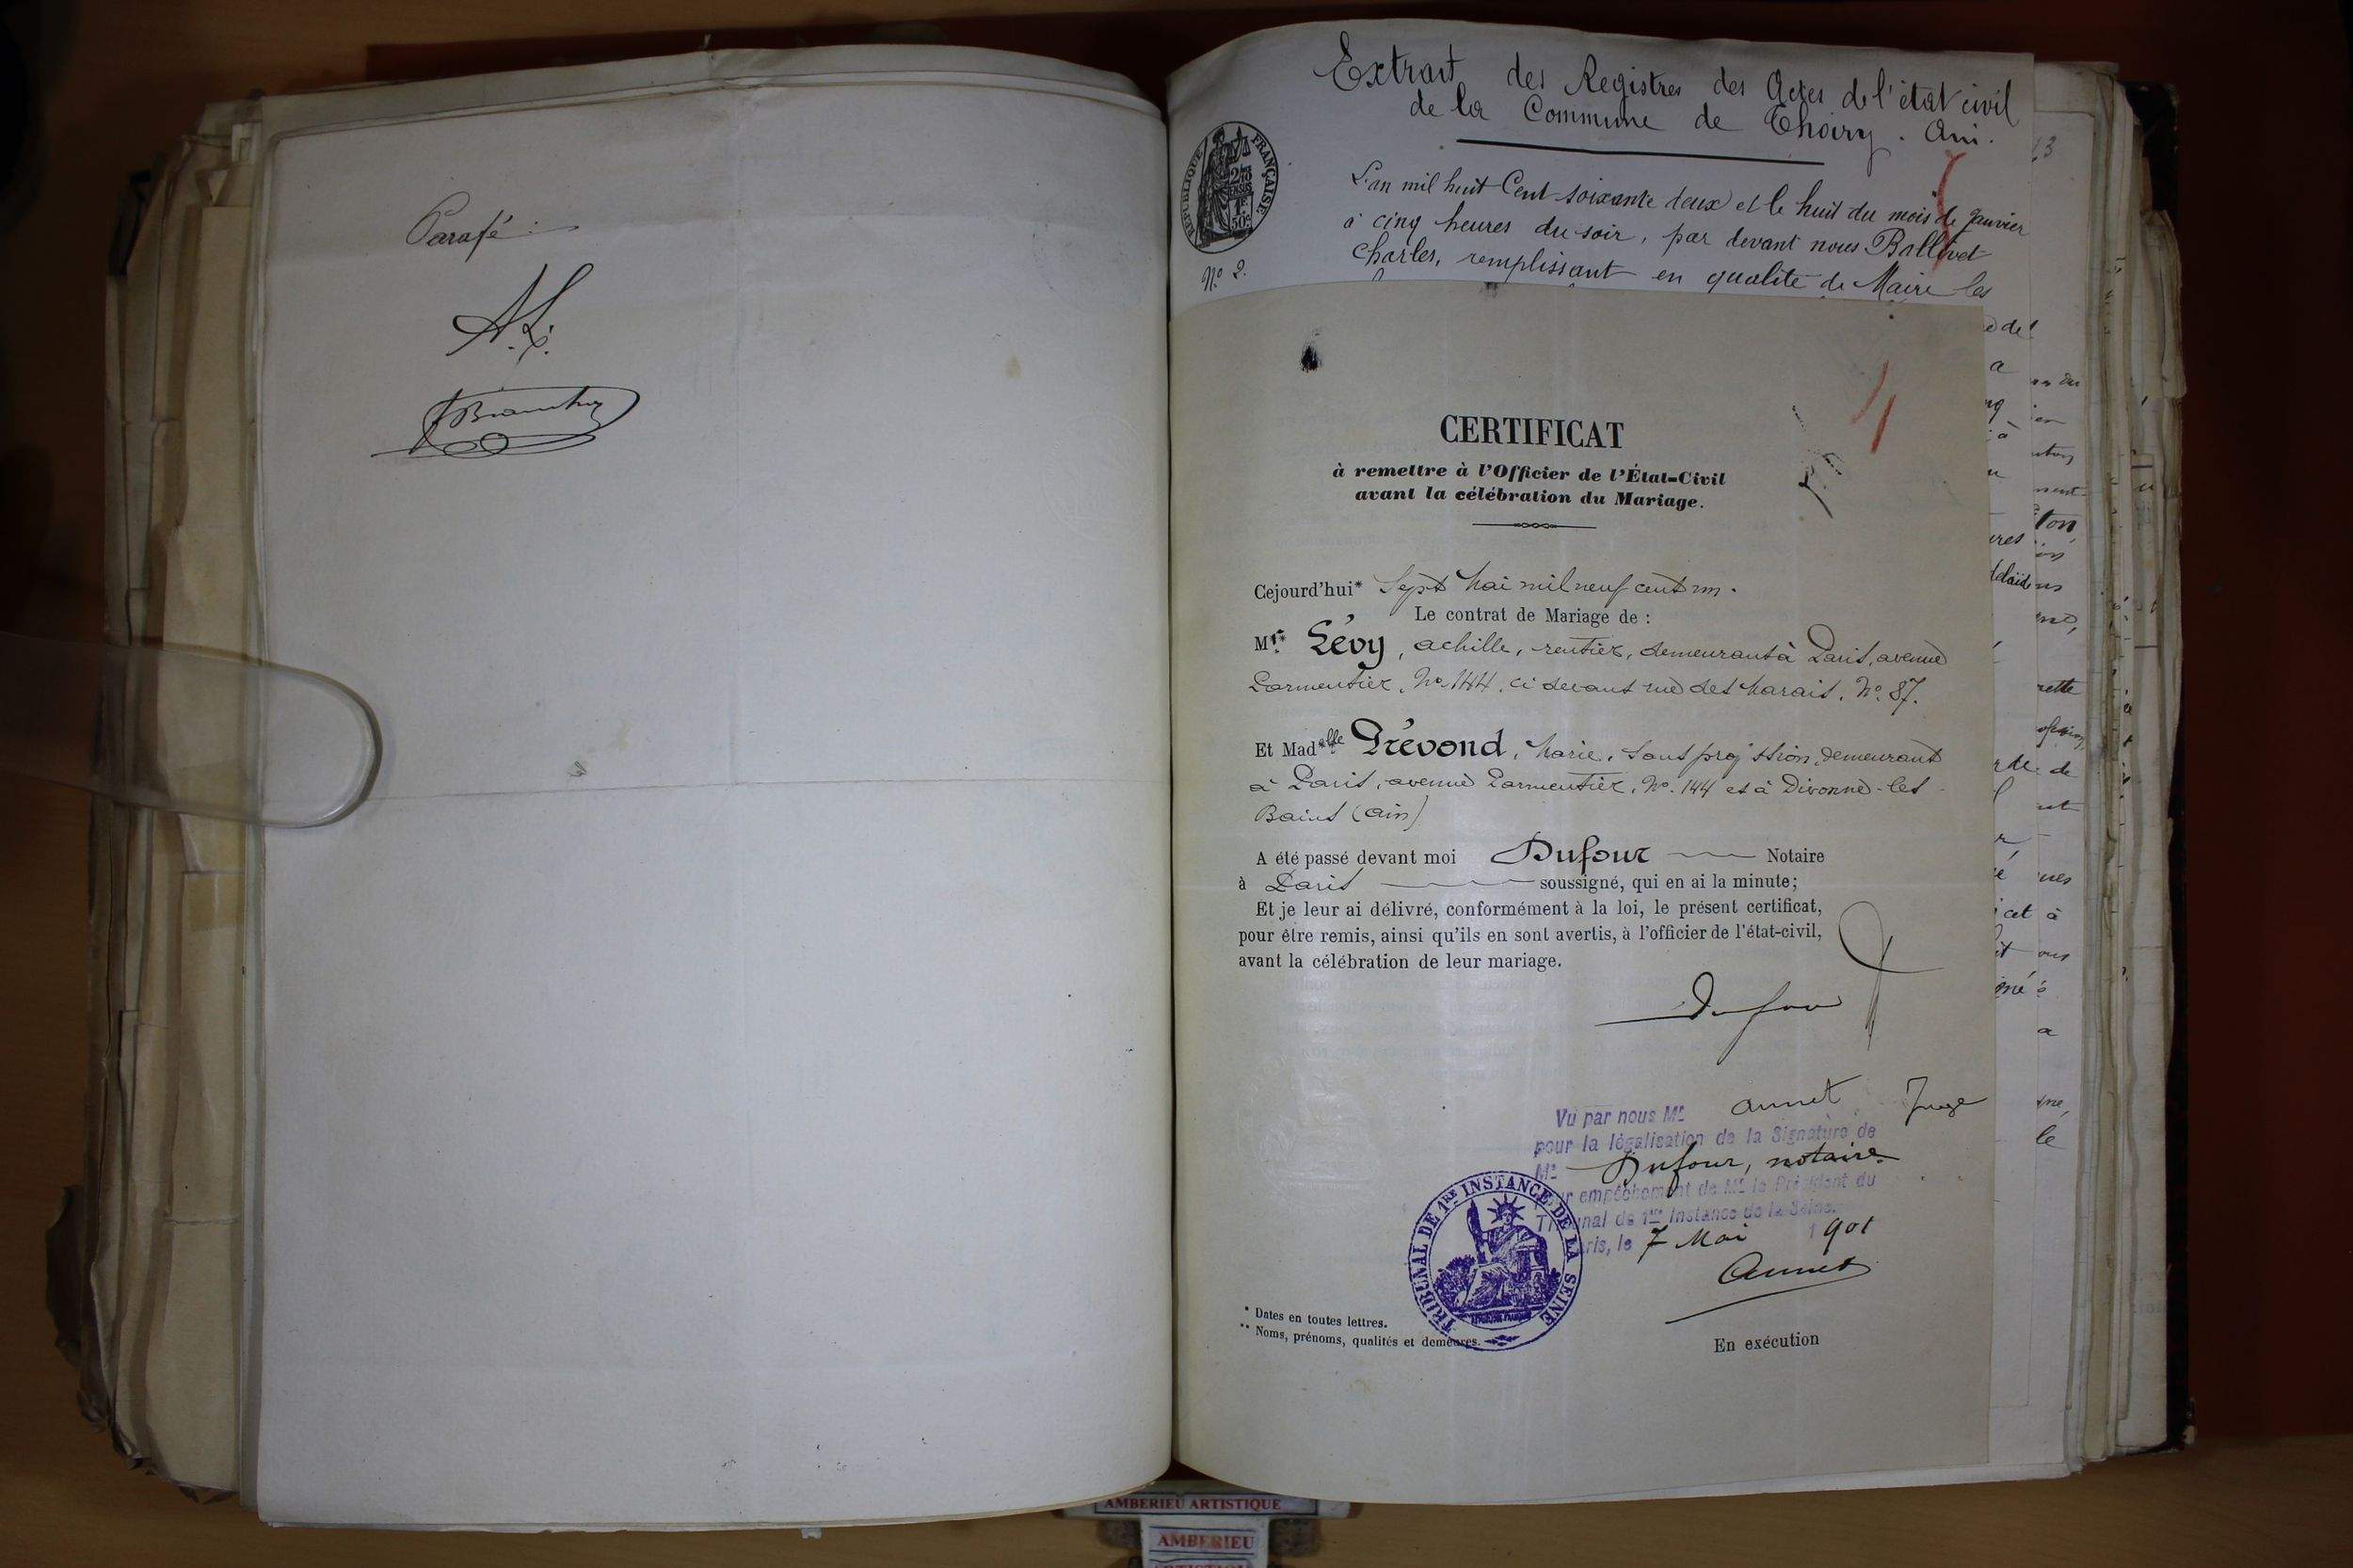 Parafé :
A.L.
Extrait des Registres des Actes de l'état civil
de la Commune de Thoiry. Ain.
RÉPUBLIQUE FRANÇAISE
2/10
EN SUS
1F
50c
L'an mil huit Cent soixante deux et le huit du mois de Janvier
à cinq heures du soir, par devant nous Ballivet
Charles, remplissant en qualité de Maire les
N° 2.
CERTIFICAT
à remettre à l'Officier de l'État-Civil
avant la célébration du Mariage.
Cejourd'hui* Sept Mai mil neuf cent un.
Le contrat de Mariage de :
Mr** Lévy, achille, rentier, demeurant à Paris, avenue
Parmentier, No. 144, ci devant rue des Marais, No. 87.
Et Mad**elle Prévond, Marie, sans profession, demeurant
à Paris, avenue Parmentier, No. 144 et à Divonne-les
Bains (ain)
A été passé devant moi Dufour Notaire
à Paris soussigné, qui en ai la minute;
Et je leur ai délivré, conformément à la loi, le présent certificat,
pour être remis, ainsi qu'ils en sont avertis, à l'officier de l'état-civil,
avant la célébration de leur mariage.
Dufour
Vu par nous Mr Aunet Juge
pour la légalisation de la Signature de
Me Dufour, notaire
r empêchement de Mr le Président du
Tribunal de 1re Instance de la Seine.
ris, le 7 Mai 1901
Aunet
TRIBUNAL DE 1RE INSTANCE DE LA SEINE
* Dates en toutes lettres.
** Noms, prénoms, qualités et demeures.
En exécution
AMBERIEU ARTISTIQUE
AMBERIEU